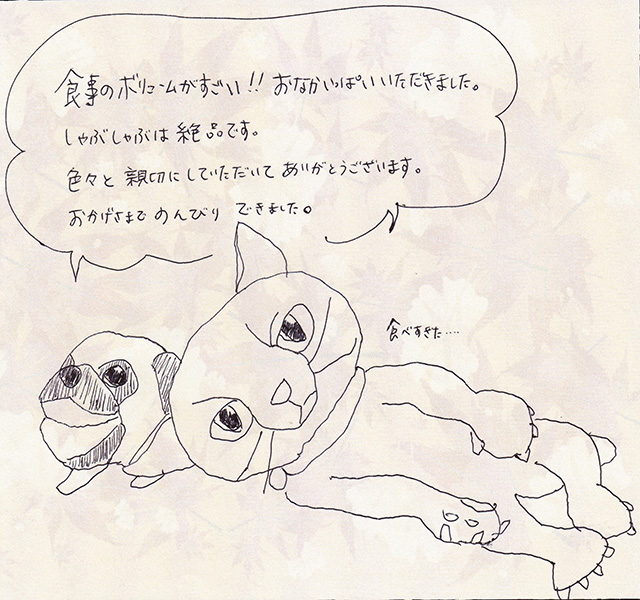 食事のボリュームがすごい!! おなかいっぱいいただきました。
しゃぶしゃぶは絶品です。
色々と親切にしていただいてありがとうございます。
おかげさまでのんびりできました。
食べすぎた……